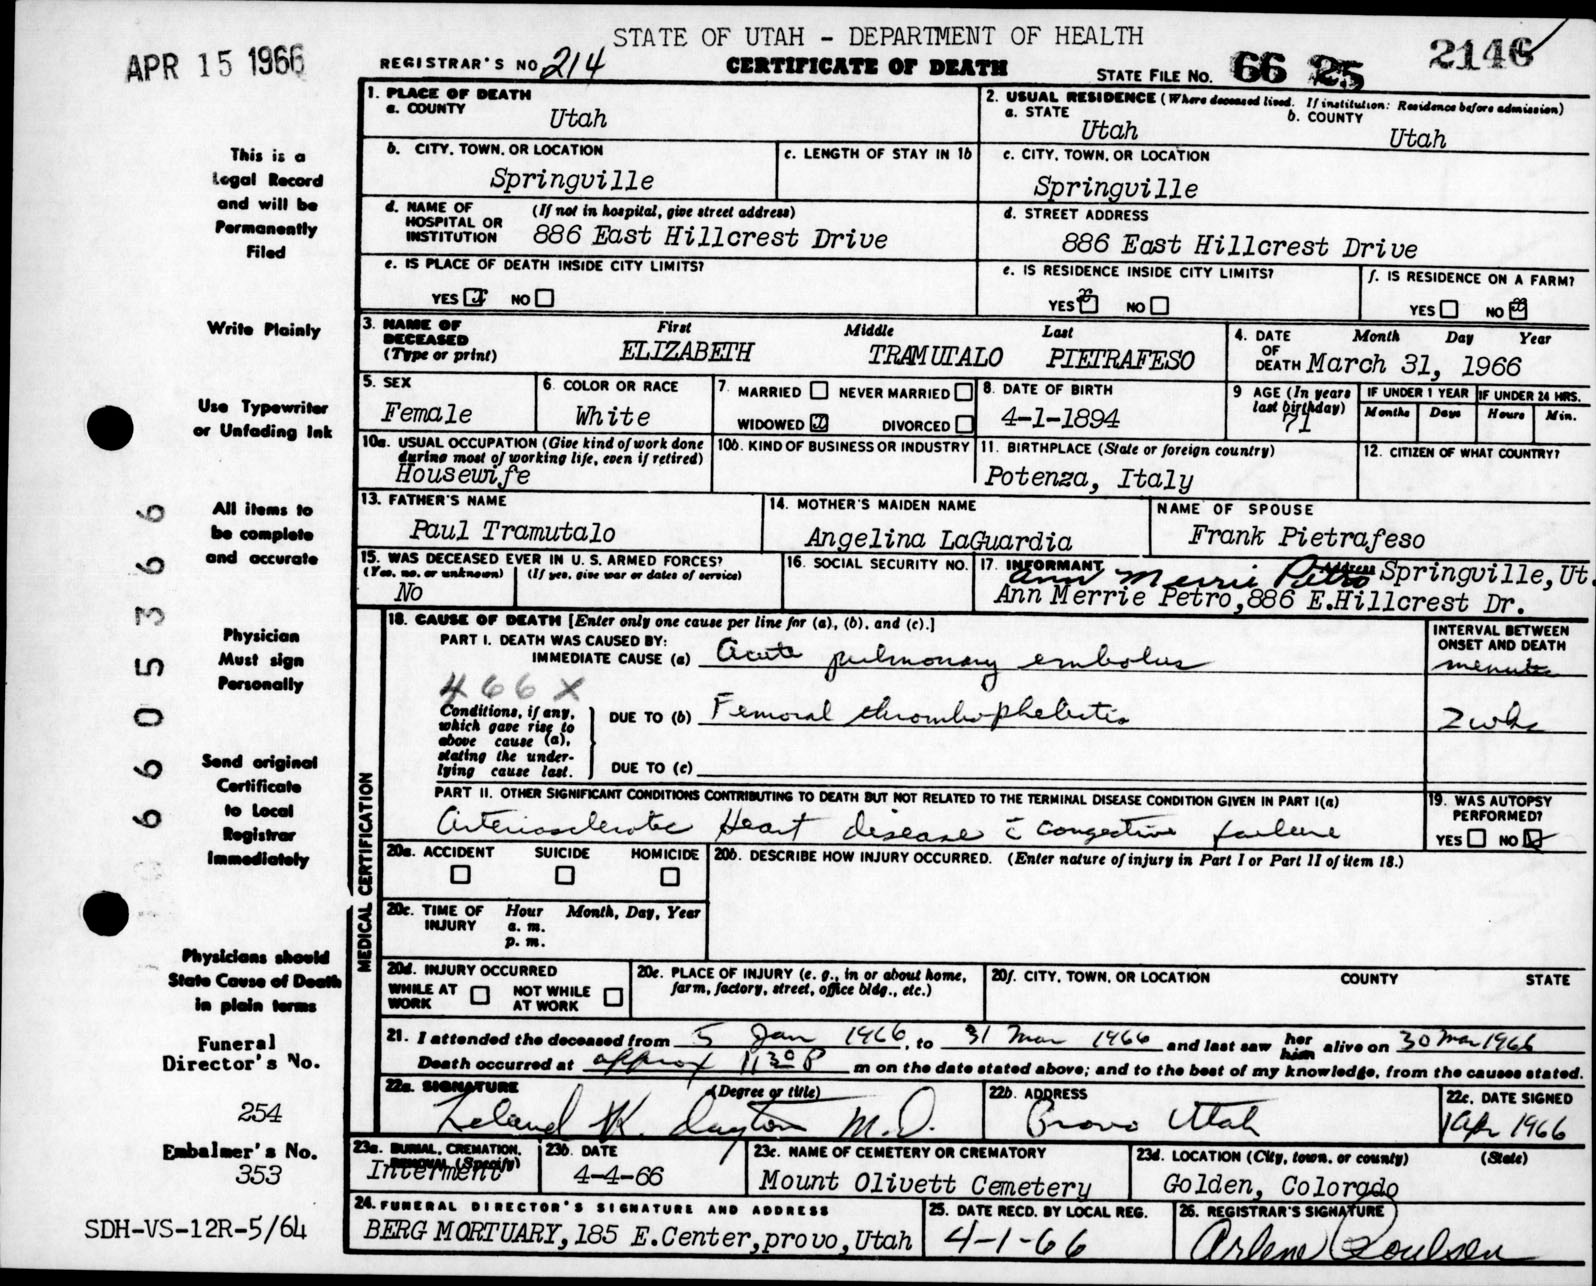 STATE OF UTAH - DEPARTMENT OF HEALTH
APR 15 1966
REGISTRAR'S NO 214
CERTIFICATE OF DEATH
STATE FILE NO. 66 25 2146
This is a
Legal Record
and will be
Permanently
Filed
Write Plainly
Use Typewriter
or Unfading Ink
All items to
be complete
and accurate
Physician
Must sign
Personally
Send original
Certificate
to Local
Registrar
Immediately
Physicians should
State Cause of Death
in plain terms
Funeral
Director's No.
254
Embalmer's No.
353
SDH-VS-12R-5/64
6605366
1. PLACE OF DEATH
a. COUNTY
Utah
2. USUAL RESIDENCE (Where deceased lived. If institution: Residence before admission)
a. STATE
Utah
b. COUNTY
Utah
b. CITY, TOWN, OR LOCATION
Springville
c. LENGTH OF STAY IN 1b
c. CITY, TOWN, OR LOCATION
Springville
d. NAME OF HOSPITAL OR INSTITUTION
(If not in hospital, give street address)
886 East Hillcrest Drive
d. STREET ADDRESS
886 East Hillcrest Drive
e. IS PLACE OF DEATH INSIDE CITY LIMITS?
YES x NO
e. IS RESIDENCE INSIDE CITY LIMITS?
YES x NO
f. IS RESIDENCE ON A FARM?
YES NO x
3. NAME OF DECEASED (Type or print)
First Middle Last
ELIZABETH TRAMUTALO PIETRAFESO
4. DATE OF DEATH
Month Day Year
March 31, 1966
5. SEX
Female
6. COLOR OR RACE
White
7. MARRIED NEVER MARRIED
WIDOWED x DIVORCED
8. DATE OF BIRTH
4-1-1894
9 AGE (In years last birthday)
71
IF UNDER 1 YEAR
Months Days
IF UNDER 24 HRS.
Hours Min.
10a. USUAL OCCUPATION (Give kind of work done during most of working life, even if retired)
Housewife
10b. KIND OF BUSINESS OR INDUSTRY
11. BIRTHPLACE (State or foreign country)
Potenza, Italy
12. CITIZEN OF WHAT COUNTRY?
13. FATHER'S NAME
Paul Tramutalo
14. MOTHER'S MAIDEN NAME
Angelina LaGuardia
NAME OF SPOUSE
Frank Pietrafeso
15. WAS DECEASED EVER IN U. S. ARMED FORCES?
(Yes, no, or unknown) (If yes, give war or dates of service)
No
16. SOCIAL SECURITY NO.
17. INFORMANT Address
Ann Merrie Petro Springville, Ut.
Ann Merrie Petro, 886 E.Hillcrest Dr.
MEDICAL CERTIFICATION
18. CAUSE OF DEATH [Enter only one cause per line for (a), (b), and (c).]
PART I. DEATH WAS CAUSED BY:
IMMEDIATE CAUSE (a) Acute pulmonary embolus
INTERVAL BETWEEN ONSET AND DEATH
minutes
466X
Conditions, if any, which gave rise to above cause (a), stating the underlying cause last.
DUE TO (b) Femoral thrombophlebitis
2 wks
DUE TO (c)
PART II. OTHER SIGNIFICANT CONDITIONS CONTRIBUTING TO DEATH BUT NOT RELATED TO THE TERMINAL DISEASE CONDITION GIVEN IN PART I(a)
Arteriosclerotic Heart disease c̄ congestive failure
19. WAS AUTOPSY PERFORMED?
YES NO x
20a. ACCIDENT SUICIDE HOMICIDE
20b. DESCRIBE HOW INJURY OCCURRED. (Enter nature of injury in Part I or Part II of item 18.)
20c. TIME OF INJURY
Hour Month, Day, Year
a. m.
p. m.
20d. INJURY OCCURRED
WHILE AT WORK NOT WHILE AT WORK
20e. PLACE OF INJURY (e. g., in or about home, farm, factory, street, office bldg., etc.)
20f. CITY, TOWN, OR LOCATION COUNTY STATE
21. I attended the deceased from 5 Jan 1966, to 31 Mar 1966 and last saw her him alive on 30 Mar 1966
Death occurred at approx 11:30 P m on the date stated above; and to the best of my knowledge, from the causes stated.
22a. SIGNATURE (Degree or title)
Leland K. Dayton M.D.
22b. ADDRESS
Provo Utah
22c. DATE SIGNED
1 Apr 1966
23a. BURIAL, CREMATION, REMOVAL (Specify)
Interment
23b. DATE
4-4-66
23c. NAME OF CEMETERY OR CREMATORY
Mount Olivett Cemetery
23d. LOCATION (City, town, or county) (State)
Golden, Colorado
24. FUNERAL DIRECTOR'S SIGNATURE AND ADDRESS
BERG MORTUARY, 185 E.Center, provo, Utah
25. DATE RECD. BY LOCAL REG.
4-1-66
26. REGISTRAR'S SIGNATURE
Arlene Poulsen